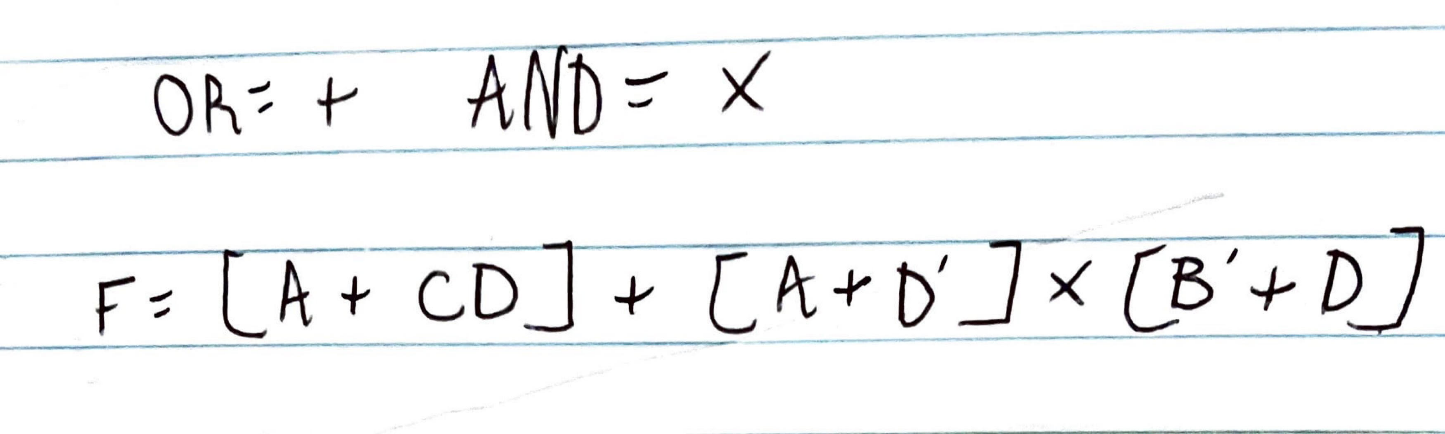 OR= + AND= ×
F= [A + CD] + [A + D'] × [B' + D]